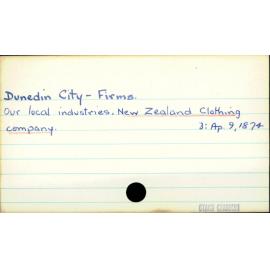 Dunedin City - Firms.
Our local industries. New Zealand Clothing
company. 3: Ap. 9, 1874